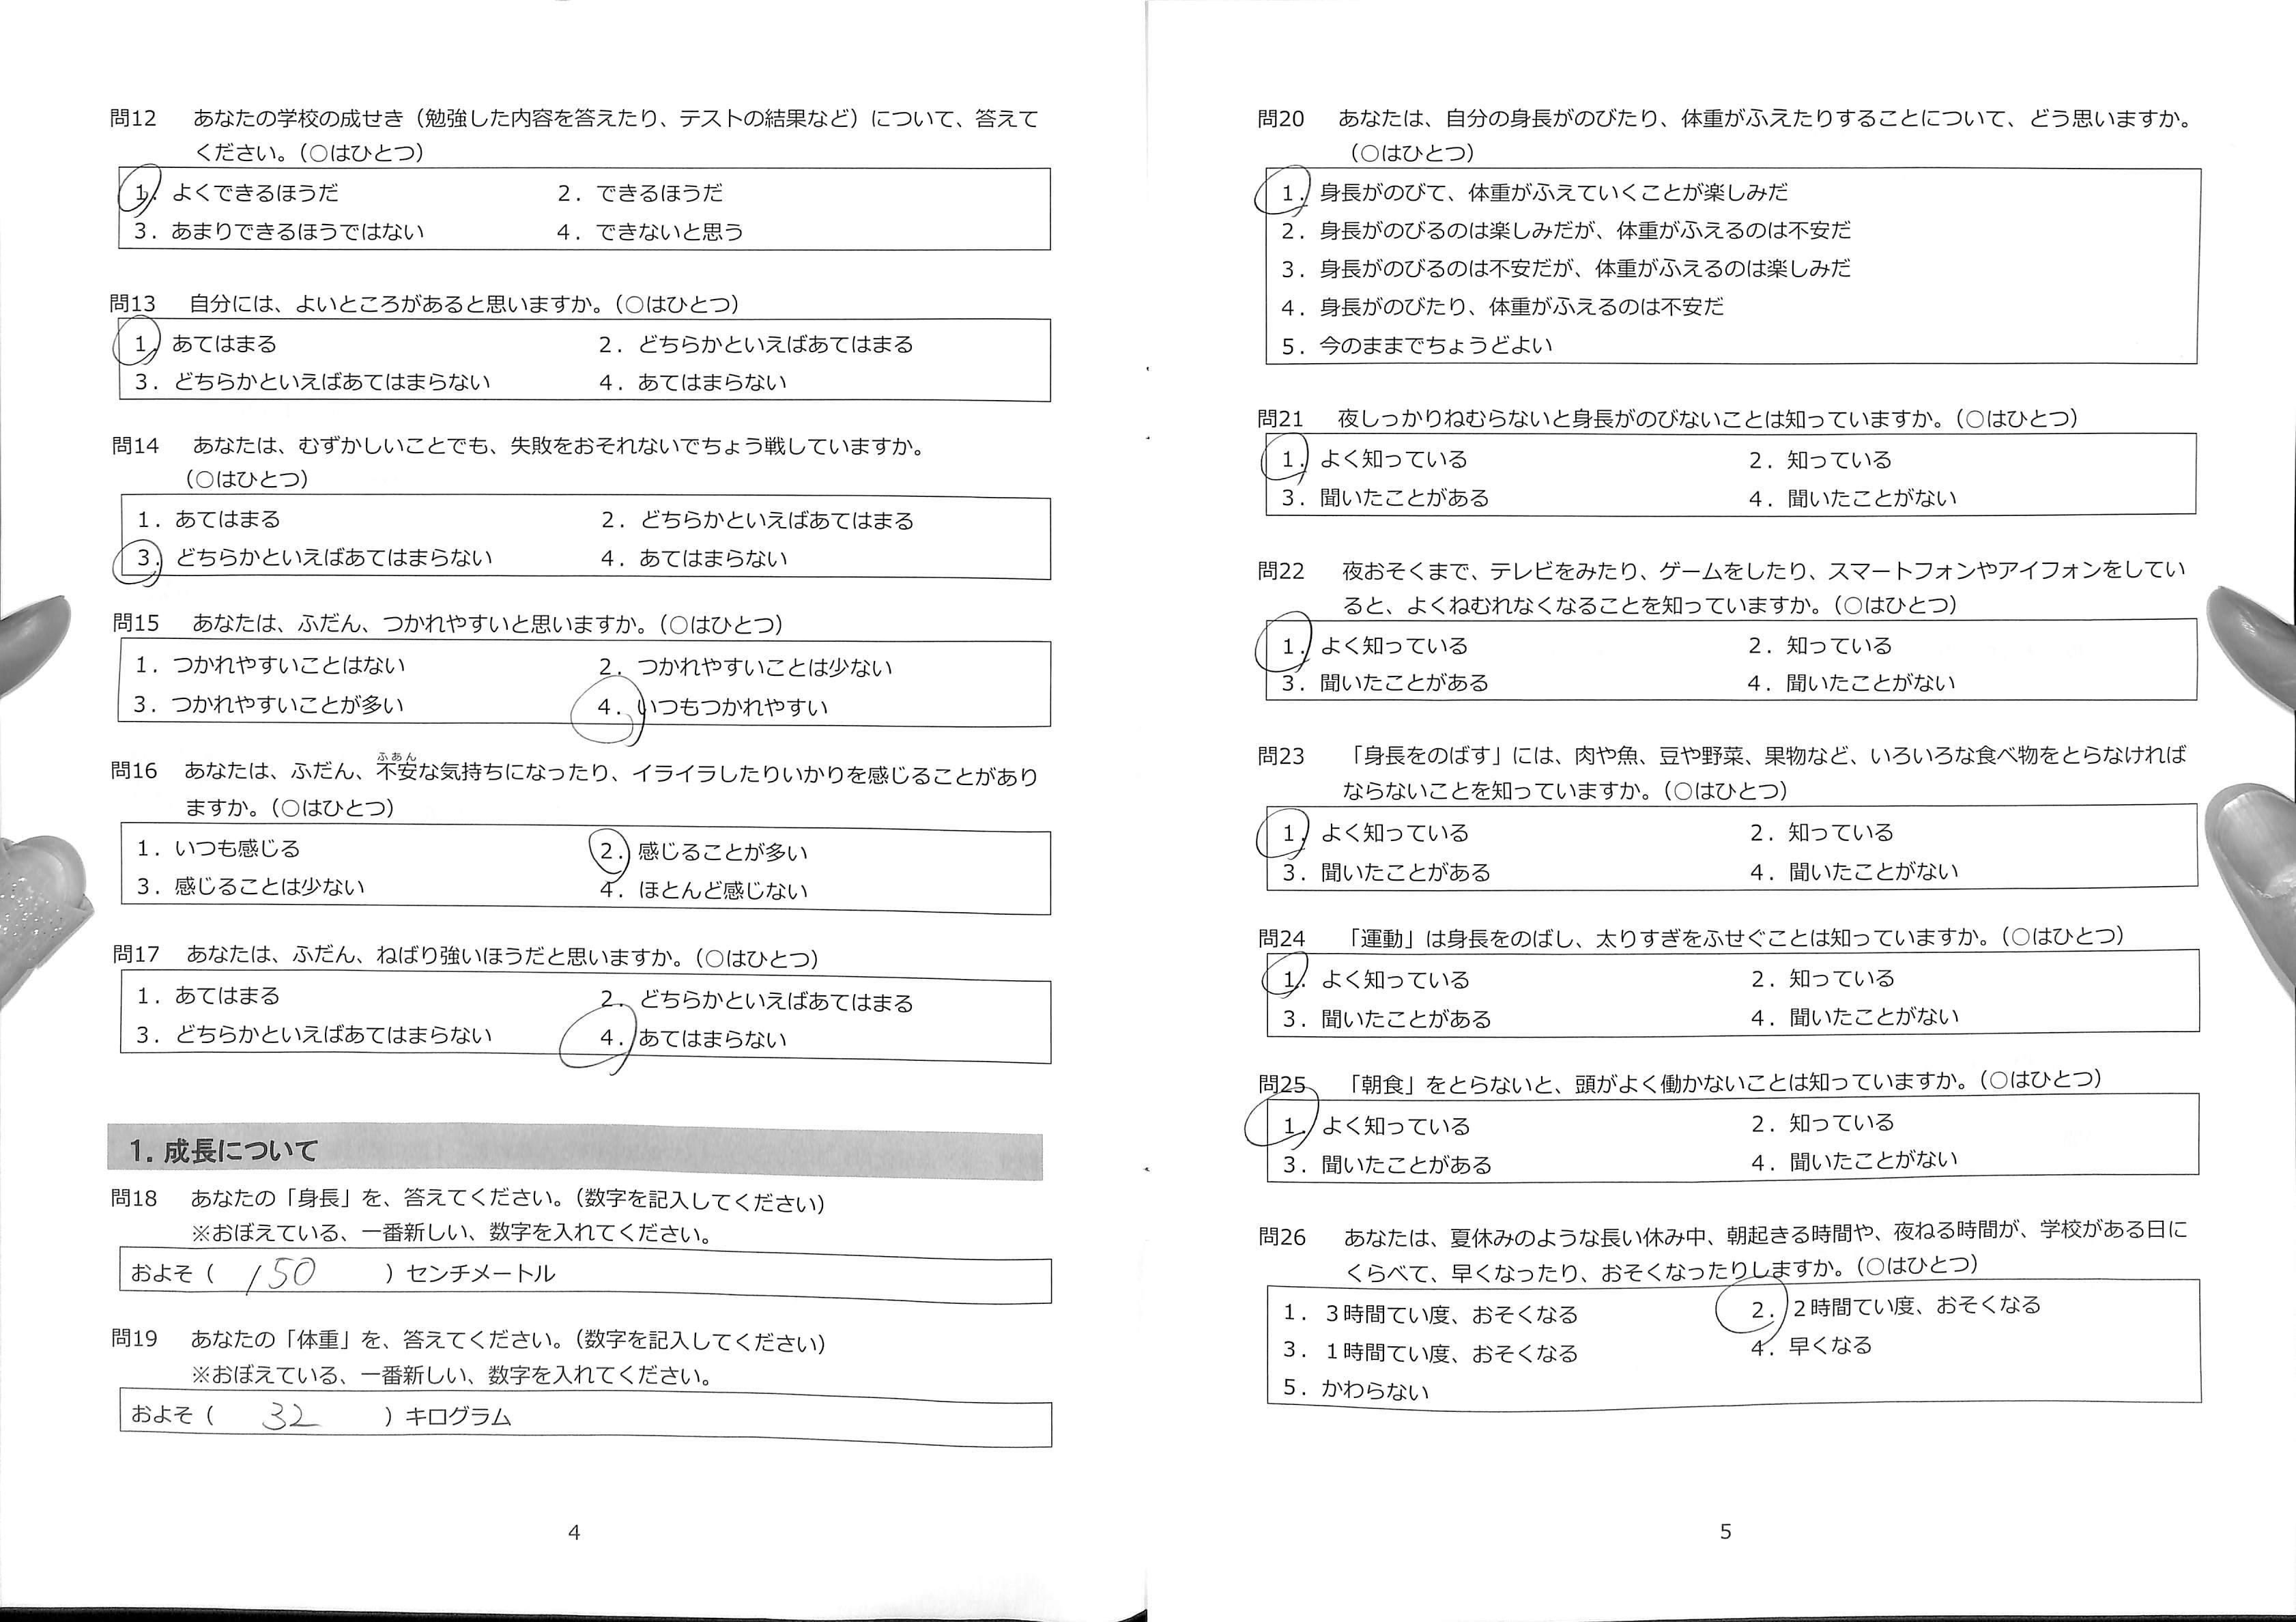 問12　あなたの学校の成せき（勉強した内容を答えたり、テストの結果など）について、答えて
ください。（○はひとつ）
1．よくできるほうだ　2．できるほうだ
3．あまりできるほうではない　4．できないと思う
問13　自分には、よいところがあると思いますか。（○はひとつ）
1．あてはまる　2．どちらかといえばあてはまる
3．どちらかといえばあてはまらない　4．あてはまらない
問14　あなたは、むずかしいことでも、失敗をおそれないでちょう戦していますか。
（○はひとつ）
1．あてはまる　2．どちらかといえばあてはまる
3．どちらかといえばあてはまらない　4．あてはまらない
問15　あなたは、ふだん、つかれやすいと思いますか。（○はひとつ）
1．つかれやすいことはない　2．つかれやすいことは少ない
3．つかれやすいことが多い　4．いつもつかれやすい
ふあん
問16　あなたは、ふだん、不安な気持ちになったり、イライラしたりいかりを感じることがあり
ますか。（○はひとつ）
1．いつも感じる　2．感じることが多い
3．感じることは少ない　4．ほとんど感じない
問17　あなたは、ふだん、ねばり強いほうだと思いますか。（○はひとつ）
1．あてはまる　2．どちらかといえばあてはまる
3．どちらかといえばあてはまらない　4．あてはまらない
1. 成長について
問18　あなたの「身長」を、答えてください。（数字を記入してください）
※おぼえている、一番新しい、数字を入れてください。
およそ（　150　）センチメートル
問19　あなたの「体重」を、答えてください。（数字を記入してください）
※おぼえている、一番新しい、数字を入れてください。
およそ（　32　）キログラム
4
問20　あなたは、自分の身長がのびたり、体重がふえたりすることについて、どう思いますか。
（○はひとつ）
1．身長がのびて、体重がふえていくことが楽しみだ
2．身長がのびるのは楽しみだが、体重がふえるのは不安だ
3．身長がのびるのは不安だが、体重がふえるのは楽しみだ
4．身長がのびたり、体重がふえるのは不安だ
5．今のままでちょうどよい
問21　夜しっかりねむらないと身長がのびないことは知っていますか。（○はひとつ）
1．よく知っている　2．知っている
3．聞いたことがある　4．聞いたことがない
問22　夜おそくまで、テレビをみたり、ゲームをしたり、スマートフォンやアイフォンをしてい
ると、よくねむれなくなることを知っていますか。（○はひとつ）
1．よく知っている　2．知っている
3．聞いたことがある　4．聞いたことがない
問23　「身長をのばす」には、肉や魚、豆や野菜、果物など、いろいろな食べ物をとらなければ
ならないことを知っていますか。（○はひとつ）
1．よく知っている　2．知っている
3．聞いたことがある　4．聞いたことがない
問24　「運動」は身長をのばし、太りすぎをふせぐことは知っていますか。（○はひとつ）
1．よく知っている　2．知っている
3．聞いたことがある　4．聞いたことがない
問25　「朝食」をとらないと、頭がよく働かないことは知っていますか。（○はひとつ）
1．よく知っている　2．知っている
3．聞いたことがある　4．聞いたことがない
問26　あなたは、夏休みのような長い休み中、朝起きる時間や、夜ねる時間が、学校がある日に
くらべて、早くなったり、おそくなったりしますか。（○はひとつ）
1．３時間てい度、おそくなる　2．２時間てい度、おそくなる
3．１時間てい度、おそくなる　4．早くなる
5．かわらない
5